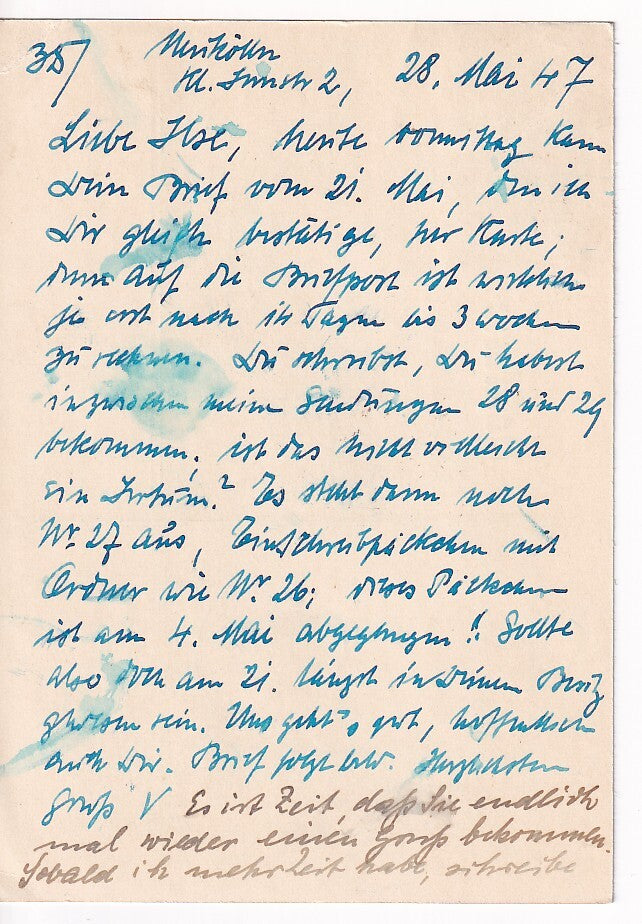 38/ Neukölln
Kl. Innstr 2, 28. Mai 47
Liebe Ilse, heute vormittag kam
Dein Brief vom 21. Mai, den ich
Dir gleich bestätige, per Karte;
denn auf die Briefpost ist wirklich
je erst nach 14 Tagen bis 3 Wochen
zu rechnen. Du schreibst, Du habest
inzwischen meine Sendungen 28 und 29
bekommen; ist das nicht vielleicht
ein Irrtum? Es steht dann noch
Nr. 27 aus, Einschreibpäckchen mit
Ordner wie Nr. 26; dieses Päckchen
ist am 4. Mai abgegangen!! Sollte
also doch am 21. längst in Deinem Besitz
gewesen sein. Uns geht's gut, hoffentlich
auch Dir. Brief folgt bald. Herzlichsten
Gruß V Es ist Zeit, daß Sie endlich
mal wieder einen Gruß bekommen.
Sobald ich mehr Zeit habe, schreibe